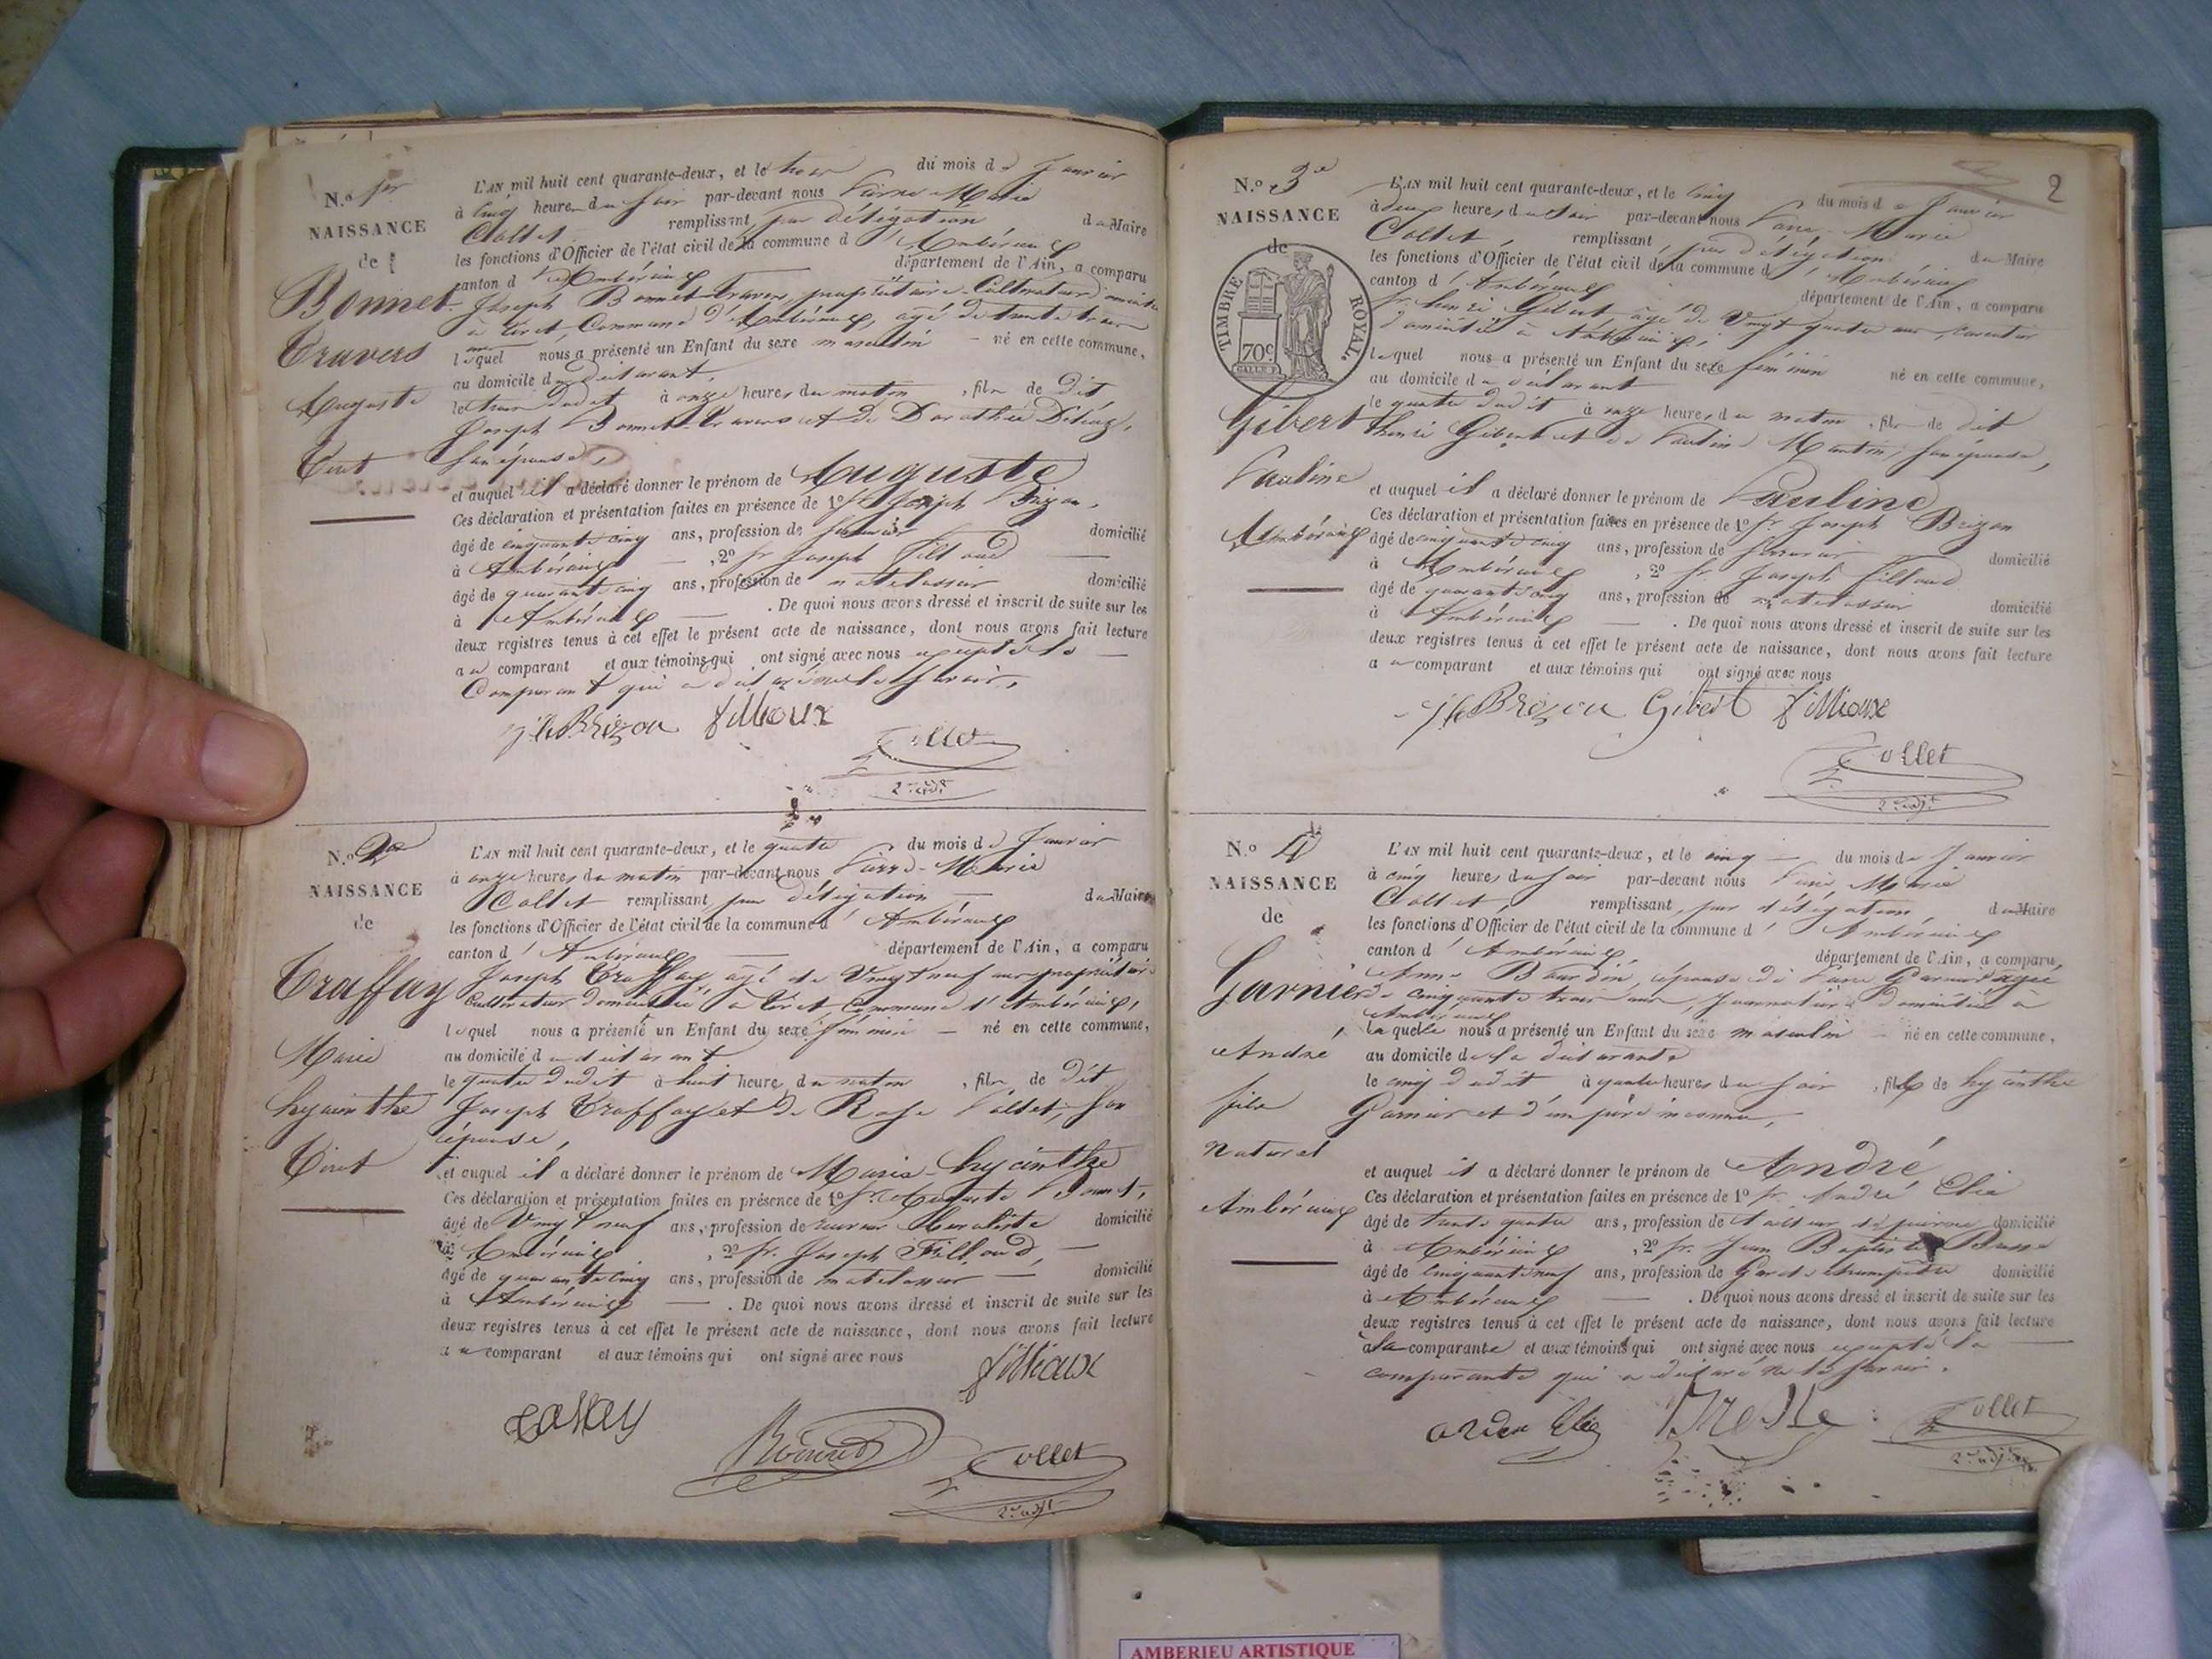 N.º 1er
NAISSANCE
de
Bonnet-
Travers
Auguste
Tiret
L'AN mil huit cent quarante-deux, et le trois du mois de Janvier
à cinq heures du soir par-devant nous Pierre Marie
Collet remplissant, par délégation du Maire
les fonctions d'Officier de l'état civil de la commune d'Ambérieux
canton d'Ambérieux département de l'Ain, a comparu
Joseph Bonnet-Travers, propriétaire-Cultivateur domicilié
à Tiret, Commune d'Ambérieux, agé de trente trois
lequel nous a présenté un Enfant du sexe masculin né en cette commune,
au domicile du déclarant,
le trois dudit à onze heures du matin, fils de dit
Joseph Bonnet-Travers et de Dorothée
son épouse,
et auquel il a déclaré donner le prénom de Auguste
Ces déclaration et présentation faites en présence de 1º Sr. Joseph Brizon,
âgé de cinquante cinq ans, profession de domicilié
à Ambérieux, 2º Sr Joseph Filloud
âgé de quarante cinq ans, profession de matelassier domicilié
à Ambérieux. De quoi nous avons dressé et inscrit de suite sur les
deux registres tenus à cet effet le présent acte de naissance, dont nous avons fait lecture
au comparant et aux témoins qui ont signé avec nous excepté le
Comparant qui a déclaré ne le savoir.
Brizon fillioux
Collet
2e adjt
N.º 2e
NAISSANCE
de
Traffay
Marie
hyacinthe
Tiret
L'AN mil huit cent quarante-deux, et le quatre du mois de Janvier
à onze heures du matin par-devant nous Pierre-Marie
Collet remplissant, par délégation du Maire
les fonctions d'Officier de l'état civil de la commune d'Ambérieux
canton d'Ambérieux département de l'Ain, a comparu
Joseph Traffay agé de vingt neuf ans propriétaire
Cultivateur domicilié à Tiret, Commune d'Ambérieux,
lequel nous a présenté un Enfant du sexe féminin né en cette commune,
au domicile du déclarant
le quatre dudit à huit heures du matin, fille de dit
Joseph Traffay et de Rose Collet, son
épouse,
et auquel il a déclaré donner le prénom de Marie-hyacinthe
Ces déclaration et présentation faites en présence de 1º Sr. Auguste
âgé de vingt neuf ans, profession de domicilié
à Ambérieux, 2º Sr. Joseph Filloud,
âgé de quarante cinq ans, profession de matelassier domicilié
à Ambérieux. De quoi nous avons dressé et inscrit de suite sur les
deux registres tenus à cet effet le présent acte de naissance, dont nous avons fait lecture
au comparant et aux témoins qui ont signé avec nous
fillioux
Collet
2e adjt
2
N.º 3e
NAISSANCE
de
TIMBRE ROYAL.
70c.
Gibert
Pauline
Ambérieux
L'AN mil huit cent quarante-deux, et le cinq du mois de Janvier
à deux heures du soir par-devant nous Pierre-Marie
Collet remplissant, par délégation du Maire
les fonctions d'Officier de l'état civil de la commune d'Ambérieux
canton d'Ambérieux département de l'Ain, a comparu
Sr. henri Gibert, âgé de Vingt quatre ans,
domicilié à Ambérieux,
lequel nous a présenté un Enfant du sexe féminin né en cette commune,
au domicile du déclarant
le quatre dudit à onze heures du matin, fille de dit
henri Gibert et de Pauline Martin, son épouse,
et auquel il a déclaré donner le prénom de Pauline
Ces déclaration et présentation faites en présence de 1º Sr. Joseph Brizon
âgé de cinquante cinq ans, profession de domicilié
à Ambérieux, 2º Sr. Joseph Filloud
âgé de quarante cinq ans, profession de matelassier domicilié
à Ambérieux. De quoi nous avons dressé et inscrit de suite sur les
deux registres tenus à cet effet le présent acte de naissance, dont nous avons fait lecture
au comparant et aux témoins qui ont signé avec nous
Brizon Gibert fillioux
Collet
2e adjt
N.º 4e
NAISSANCE
de
Garnier
André
fils
Naturel
Ambérieux
L'AN mil huit cent quarante-deux, et le cinq du mois de Janvier
à cinq heures du soir par-devant nous Pierre Marie
Collet, remplissant, par délégation, du Maire
les fonctions d'Officier de l'état civil de la commune d'Ambérieux
canton d'Ambérieux, département de l'Ain, a comparu,
Anne Bourdin, épouse de Garnier agée
de cinquante trois ans, Journalière domiciliée à
Ambérieux
laquelle nous a présenté un Enfant du sexe masculin né en cette commune,
au domicile de la déclarante
le cinq dudit à quatre heures du soir, fils de hyacinthe
Garnier et d'un père inconnu,
et auquel il a déclaré donner le prénom de André
Ces déclaration et présentation faites en présence de 1º Sr. André Elie
âgé de trente quatre ans, profession de tailleur de pierres domicilié
à Ambérieux, 2º Sr. Jean Baptiste
âgé de Cinquante neuf ans, profession de Garde champêtre domicilié
à Ambérieux. De quoi nous avons dressé et inscrit de suite sur les
deux registres tenus à cet effet le présent acte de naissance, dont nous avons fait lecture
à la comparante et aux témoins qui ont signé avec nous excepté la
comparante qui a déclaré ne le savoir.
Elie
Collet
2e adjt
AMBERIEU ARTISTIQUE